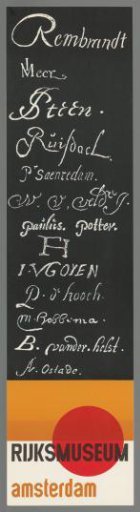 Rembrandt
Meer
Steen.
Ruisdael.
P. Saenredam.
paulus. Potter.
FH
I·VGOIEN
P. d. hooch.
m. hobbema.
B. vander. helst.
Av. Ostade.
RIJKSMUSEUM
amsterdam